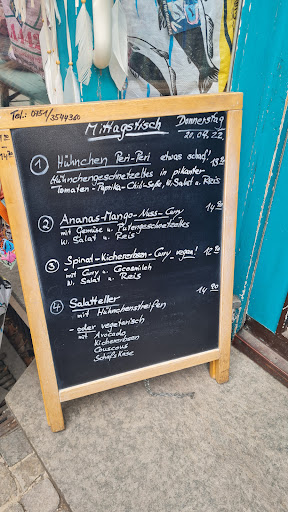 Tel.: 0451/3544300
Mittagstisch Donnerstag
21.04.22
1 Hühnchen Peri-Peri etwas scharf!
Hühnchengeschnetzeltes in pikanter
Tomaten-Paprika-Chili-Soße, W. Salat u. Reis
2 Ananas-Mango-Nuss-Curry 14.90
mit Gemüse u. Putengeschnetzeltes
W. Salat u. Reis
3 Spinat-Kichererbsen-Curry -vegan!
mit Curry u. Cocosmilch
W. Salat u. Reis
4 Salatteller 14.90
- mit Hühnchenstreifen
- oder vegetarisch
mit Avocado
Kichererbsen
Couscous
Schafskäse